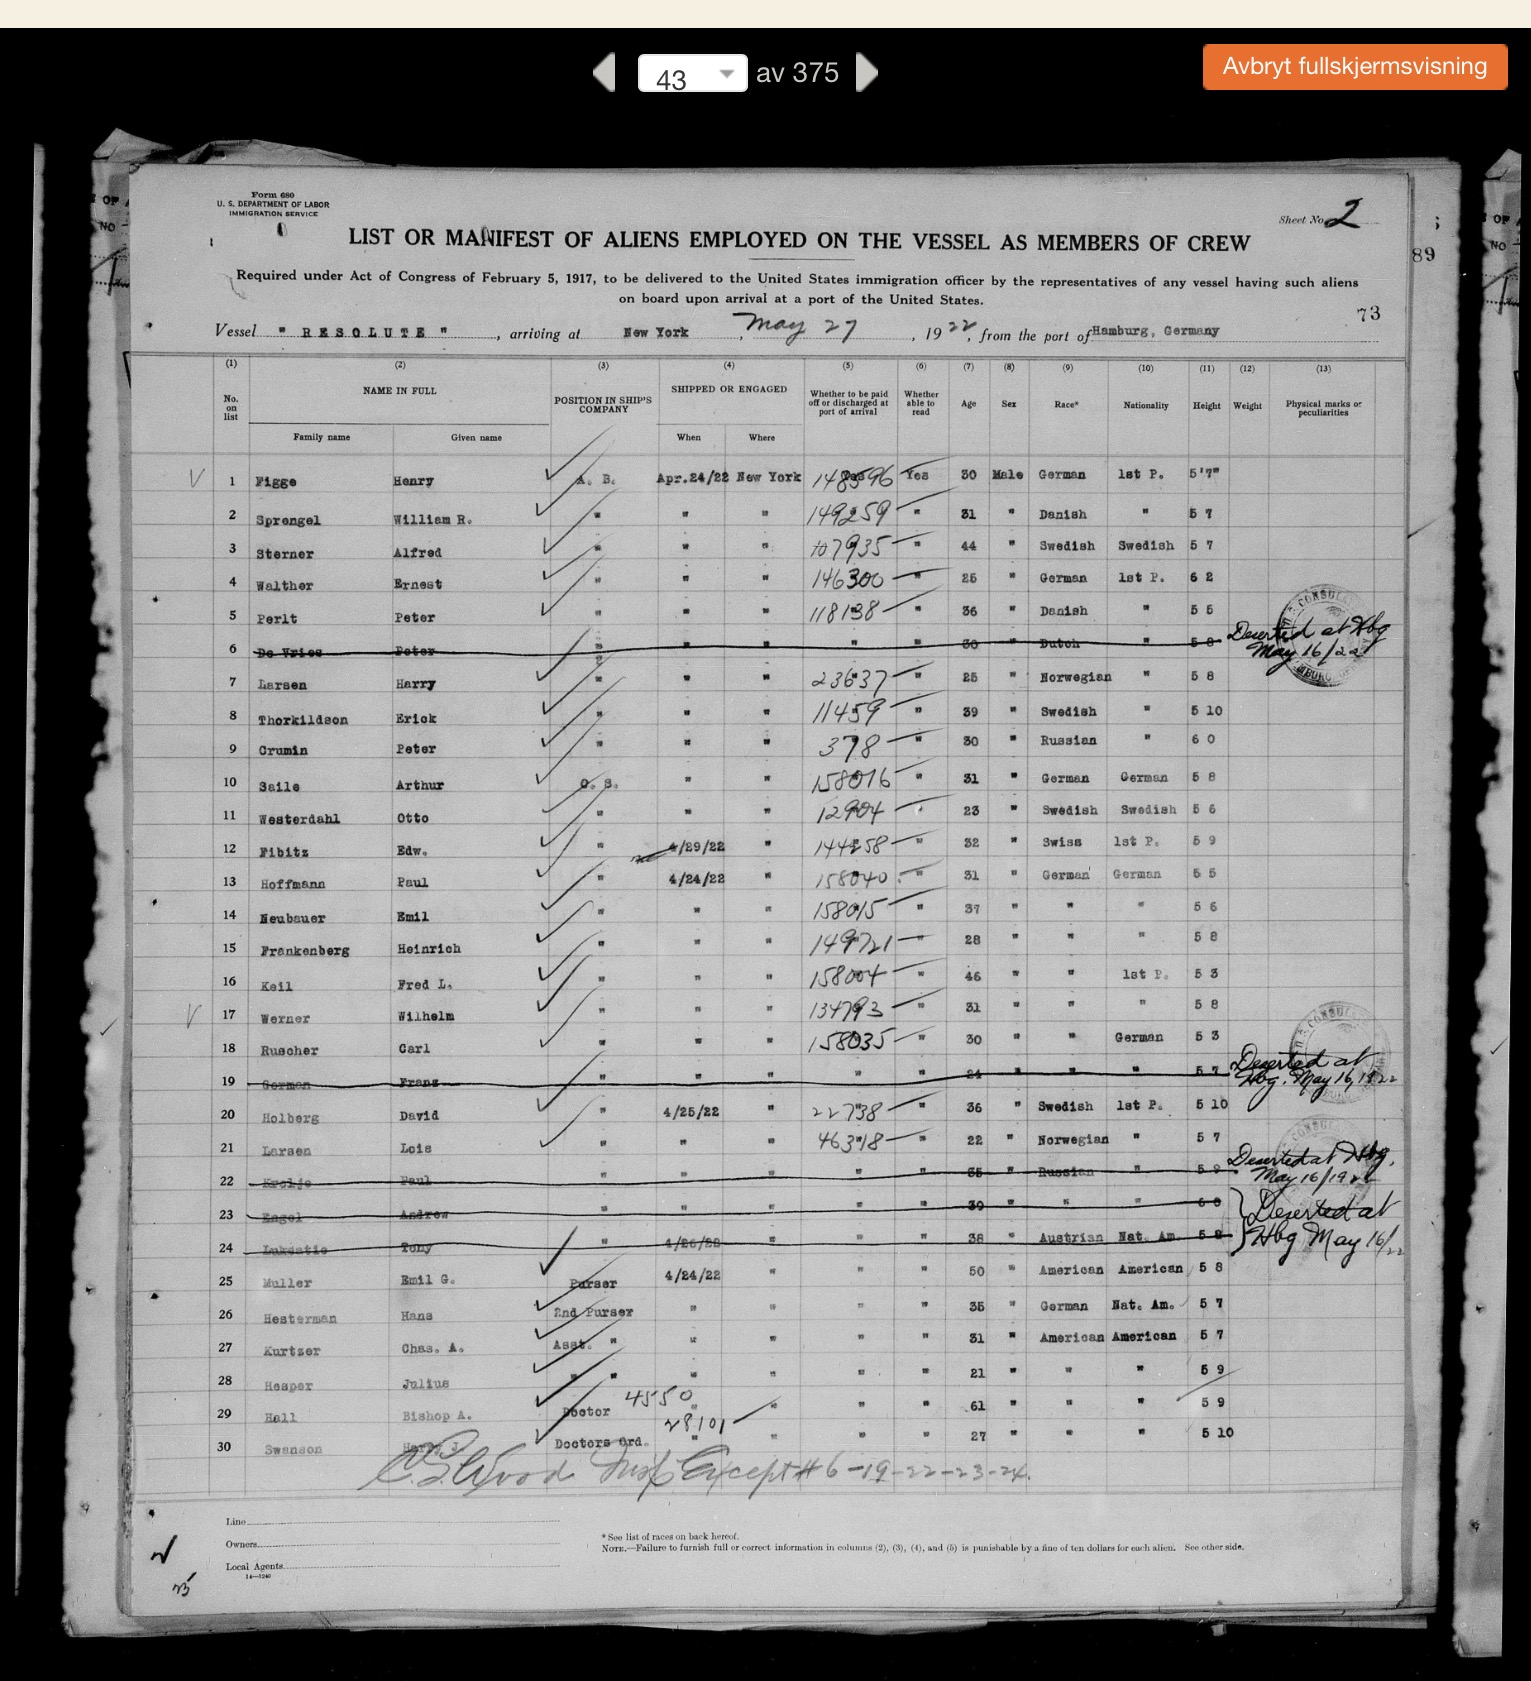 43 av 375
Avbryt fullskjermsvisning
Form 680
U. S. DEPARTMENT OF LABOR
IMMIGRATION SERVICE
Sheet No. 2
LIST OR MANIFEST OF ALIENS EMPLOYED ON THE VESSEL AS MEMBERS OF CREW
89
Required under Act of Congress of February 5, 1917, to be delivered to the United States immigration officer by the representatives of any vessel having such aliens
on board upon arrival at a port of the United States.
73
Vessel " RESOLUTE ", arriving at New York, May 27, 1922, from the port of Hamburg, Germany
(1) (2) (3) (4) (5) (6) (7) (8) (9) (10) (11) (12) (13)
No. on list NAME IN FULL POSITION IN SHIP'S COMPANY SHIPPED OR ENGAGED Whether to be paid off or discharged at port of arrival Whether able to read Age Sex Race* Nationality Height Weight Physical marks or peculiarities
Family name Given name When Where
1 Figge Henry A. B. Apr.24/22 New York Yes 148596 Yes 30 Male German 1st P. 5'7"
2 Sprengel William R. " " " 149259 " 31 " Danish " 5 7
3 Sterner Alfred " " " 107935 " 44 " Swedish Swedish 5 7
4 Walther Ernest " " " 146300 " 25 " German 1st P. 6 2
5 Perlt Peter " " " 118138 " 36 " Danish " 5 5
6 De Vries Peter " " " " " 30 " Dutch " 5 8 Deserted at Hbg May 16/22
7 Larsen Harry " " " 23637 " 25 " Norwegian " 5 8
8 Thorkildson Erick " " " 11459 " 39 " Swedish " 5 10
9 Crumin Peter " " " 378 " 30 " Russian " 6 0
10 Saile Arthur O. S. " " 158016 " 31 " German German 5 8
11 Westerdahl Otto " " " 12904 " 23 " Swedish Swedish 5 6
12 Fibitz Edw. " 4/29/22 " 144258 " 32 " Swiss 1st P. 5 9
13 Hoffmann Paul " 4/24/22 " 158040 " 31 " German German 5 5
14 Neubauer Emil " " " 158015 " 37 " " " 5 6
15 Frankenberg Heinrich " " " 149721 " 28 " " " 5 8
16 Keil Fred L. " " " 158004 " 46 " " 1st P. 5 3
17 Werner Wilhelm " " " 134793 " 31 " " " 5 8
18 Ruscher Carl " " " 158035 " 30 " " German 5 3
19 Gorman Franz " " " " " 24 " " " 5 7 Deserted at Hbg. May 16, 1922
20 Holberg David " 4/25/22 " 22738 " 36 " Swedish 1st P. 5 10
21 Larsen Lois " " " 46318 " 22 " Norwegian " 5 7
22 Paul " " " " " 35 " Russian " 5 9 Deserted at Hbg. May 16/1922
23 Engel Andrew " " " " " 39 " " " 6 0 Deserted at
24 Tony " 4/26/22 " " " 38 " Austrian Nat. Am. 5 8 Hbg May 16/22
25 Muller Emil G. Purser 4/24/22 " " " 50 " American American 5 8
26 Hesterman Hans 2nd Purser " " " " 35 " German Nat. Am. 5 7
27 Kurtzer Chas. A. Asst. " " " " " 31 " American American 5 7
28 Hesper Julius " " " " " " 21 " " " 5 9
29 Hall Bishop A. Doctor 4550 " " " " 61 " " " 5 9
30 Swanson Harry J. Doctors Ord. 28101 " " " " 27 " " " 5 10
Insp Except # 6-19-22-23-24.
Line
Owners
Local Agents
14—1240
* See list of races on back hereof.
NOTE.—Failure to furnish full or correct information in columns (2), (3), (4), and (5) is punishable by a fine of ten dollars for each alien. See other side.